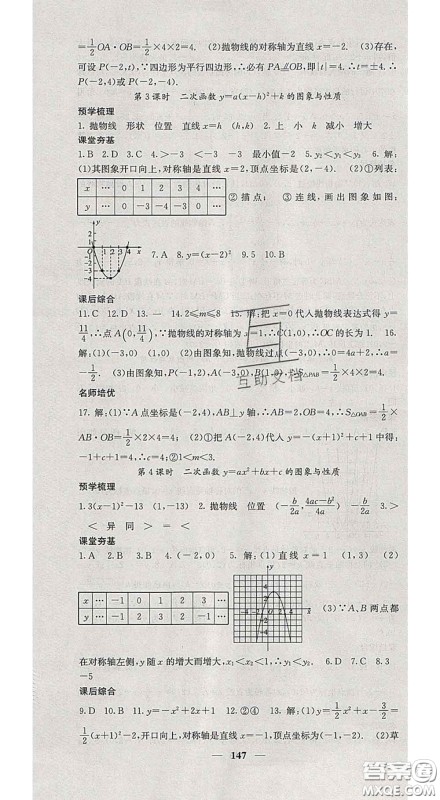 =1/2 OA·OB=1/2×4×2=4. (2)抛物线的对称轴为直线x=-2. (3)存在,
可设P(-2,t),∵四边形为平行四边形,∴必有PA∥OB,即|t|=4.∴t=±4.
∴P(-2,4)或(-2,-4).
第3课时 二次函数y=a(x-h)²+k的图象与性质
预学梳理
1. 抛物线 形状 位置 直线x=h (h,k) 2. 上 小 k 减小 增大
课堂夯基
1. B 2. D 3. C 4. >-3 <-3 -3 最小值-2 5. y₂<y₁<y₃ 6. 解:
(1)其图象开口向上,对称轴是直线x=2,顶点坐标是(2,-4). (2)①列表:
x … 0 1 2 3 4 …
y … 0 -3 -4 -3 0 …
②描点; ③连线,画出图象如图:
7. A 8. y=(x-2)² 9. 5 10. B
课后综合
11. C 12. D 13. 一 14. 2≤m≤8 15. 解:把x=0代入抛物线表达式得y=
11/4,∴点A(0,11/4),∵抛物线的对称轴为x=1,∴C(1,0),∴OC的长为1. 16.
解:(1)(-3,0) (2)由图象知,抛物线过点(-3,0),∴0=4a+2,∴a=
-1/2. (3)由图象可知,P(-1,2),A(-3,0),B(1,0),∴S△PAB=1/2×4×2=4.
互助文档
名师培优
17. 解:(1)∵A点坐标是(-2,4),AB⊥y轴,∴AB=2,OB=4,∴S△OAB=1/2×
AB·OB=1/2×2×4=4; (2)①把点A的坐标(-2,4)代入y=-(x+1)²+c中得:
-1+c=4,∴c=5;②1<m<3.
第4课时 二次函数y=ax²+bx+c的图象与性质
预学梳理
1. 3(x-1)²-13 (1,-13) 2. 抛物线 位置 (-b/2a,(4ac-b²)/4a) -b/2a 3. >
< 异 同 > = <
课堂夯基
1. A 2. B 3. D 4. (-2,0) 5. 解:(1)直线x=1 (1,3) (2)
x … -1 0 1 2 3 …
y … -1 2 3 2 -1 …
(3)∵A、B两点都
在对称轴左侧,y随x的增大而增大,x₁<x₂<1,∴y₁<y₂. 6. D 7. C 8. 3
-5
课后综合
9. D 10. B 11. y=-x²+2x+1 12. ②④ 13. 解:(1)y=1/2x²+x-3/2=
1/2(x+1)²-2,开口向上,对称轴是直线x=-1,顶点坐标为(-1,-2). (2)草
147
答案圈
MXQE.COM